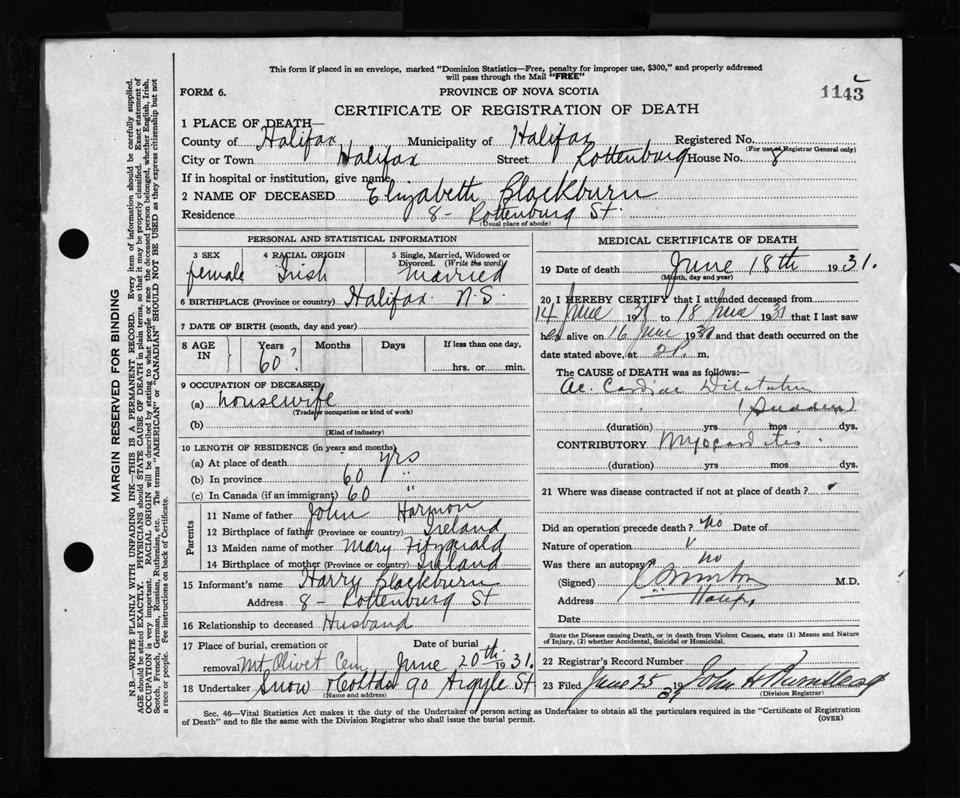 This form if placed in an envelope, marked "Dominion Statistics—Free, penalty for improper use, $300," and properly addressed
will pass through the Mail "FREE"
FORM 6.
PROVINCE OF NOVA SCOTIA
1143
CERTIFICATE OF REGISTRATION OF DEATH
1 PLACE OF DEATH—
County of Halifax Municipality of Halifax Registered No.
(For use of Registrar General only)
City or Town Halifax Street Rottenburg House No. 8
If in hospital or institution, give name
2 NAME OF DECEASED Elizabeth Blackburn
Residence 8- Rottenburg St.
(Usual place of abode)
PERSONAL AND STATISTICAL INFORMATION
3 SEX 4 RACIAL ORIGIN 5 Single, Married, Widowed or
Divorced. (Write the word)
female Irish married
6 BIRTHPLACE (Province or country) Halifax N.S.
7 DATE OF BIRTH (month, day and year)
8 AGE IN Years Months Days If less than one day,
60? hrs. or min.
9 OCCUPATION OF DECEASED
(a) housewife
(Trade or occupation or kind of work)
(b)
(Kind of industry)
10 LENGTH OF RESIDENCE (in years and months)
(a) At place of death yrs
(b) In province 60 "
(c) In Canada (if an immigrant) 60 "
Parents
11 Name of father John Harmon
12 Birthplace of father (Province or country) Ireland
13 Maiden name of mother Mary Fitzgerald
14 Birthplace of mother (Province or country) Ireland
15 Informant's name Harry Blackburn
Address 8- Rottenburg St
16 Relationship to deceased Husband
17 Place of burial, cremation or Date of burial
removal Mt Olivet Cem June 20th 1931.
18 Undertaker Snow & Co Ltd 90 Argyle St
(Name and address)
MEDICAL CERTIFICATE OF DEATH
19 Date of death June 18th 1931.
(Month, day and year)
20 I HEREBY CERTIFY that I attended deceased from
14 June 1931 to 18 June 1931 that I last saw
her alive on 16 June 1931 and that death occurred on the
date stated above, at m.
The CAUSE OF DEATH was as follows:—
Ac. Cardiac Dilatation
(Sudden)
(duration) yrs mos dys.
CONTRIBUTORY Myocarditis.
(duration) yrs mos dys.
21 Where was disease contracted if not at place of death?
Did an operation precede death? No Date of
Nature of operation
Was there an autopsy? No
(Signed) M.D.
Address Halifx,
Date
State the Disease causing Death, or in death from Violent Causes, state (1) Means and Nature
of Injury, (2) whether Accidental, Suicidal or Homicidal.
22 Registrar's Record Number
23 Filed June 25 1931 John H
(Division Registrar)
Sec. 46—Vital Statistics Act makes it the duty of the Undertaker or person acting as Undertaker to obtain all the particulars required in the "Certificate of Registration
of Death" and to file the same with the Division Registrar who shall issue the burial permit.
(OVER)
MARGIN RESERVED FOR BINDING
N.B.—WRITE PLAINLY WITH UNFADING INK—THIS IS A PERMANENT RECORD. Every item of information should be carefully supplied.
AGE should be stated EXACTLY. PHYSICIANS should STATE CAUSE OF DEATH in plain terms, so that it may be properly classified. Exact statement of
OCCUPATION is very important. RACIAL ORIGIN will be described by stating to what people or race the deceased person belonged, whether English, Irish,
Scotch, French, German, Russian, Ruthenian, etc. The terms "AMERICAN" or "CANADIAN" SHOULD NOT BE USED as they express citizenship but not
a race or people. Fee instructions on back of Certificate.